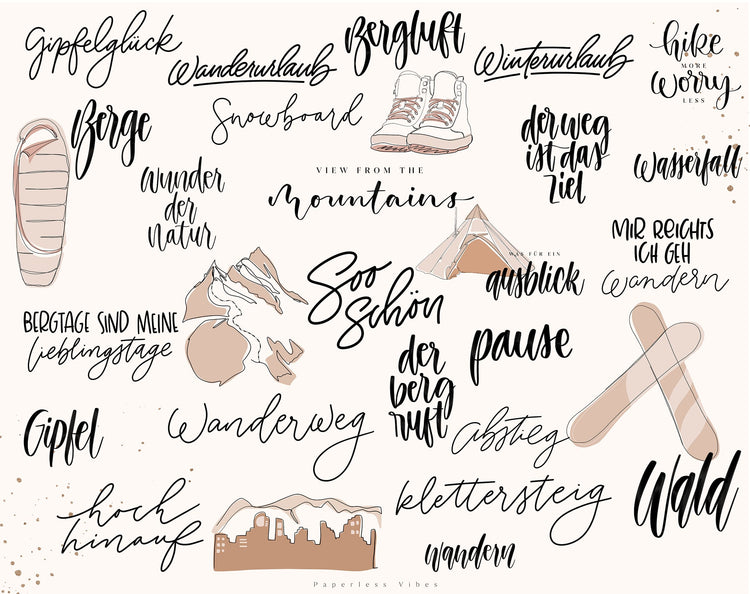 Gipfelglück
Wanderurlaub
Bergluft
Winterurlaub
hike
MORE
worry
LESS
Berge
Snowboard
der weg
ist das
Ziel
Wasserfall
wunder
der
natur
VIEW FROM THE
Mountains
MIR REICHTS
ICH GEH
wandern
WAS FÜR EIN
ausblick
Soo
Schön
BERGTAGE SIND MEINE
lieblingstage
pause
der
berg
ruft
Gipfel
Wanderweg
Abstieg
hoch
hinauf
klettersteig
Wald
wandern
Paperless Vibes